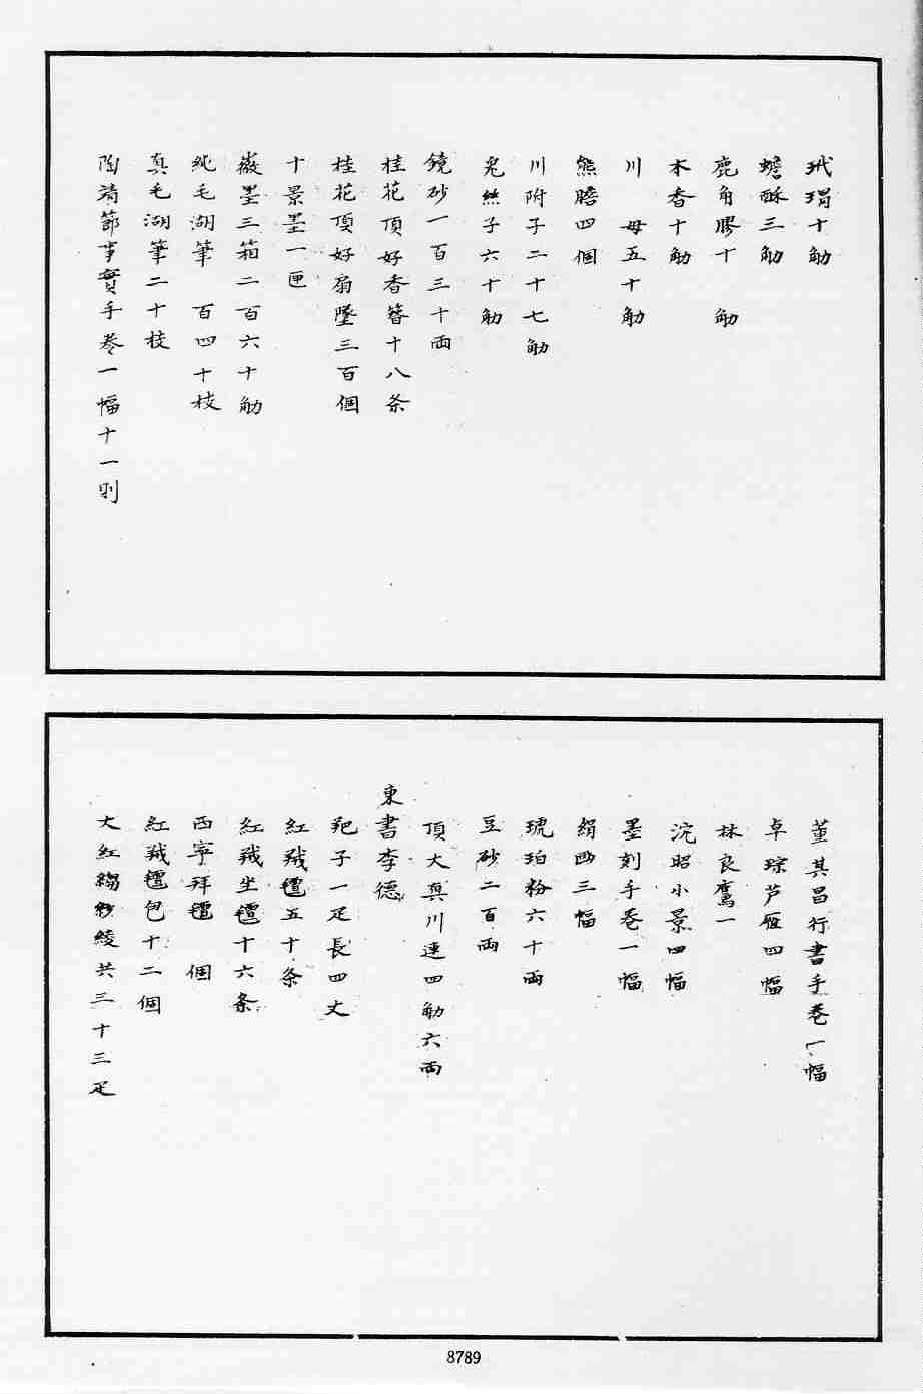 玳瑁十觔
蟾酥三觔
鹿角膠十 觔
木香十觔
川 母五十觔
熊膽四個
川附子二十七觔
兎絲子六十觔
鏡砂一百三十両
桂花頂好香簪十八条
桂花頂好扇墜三百個
十景墨一匣
徽墨三箱二百六十觔
純毛湖筆 百四十枝
真毛湖筆二十枝
陶靖節事實手卷一幅十一則
董其昌行書手卷一幅
卓琮芦雁四幅
林良鷹一
沈昭小景四幅
墨刻手卷一幅
絹画三幅
琥珀粉六十両
豆砂二百両
頂大真川連四觔六両
東書李德
羓子一疋長四丈
紅羢氊五十条
紅羢坐氊十六条
西寧拜氊 個
紅羢氊包十二個
大紅縐紗綾共三十三疋
8789